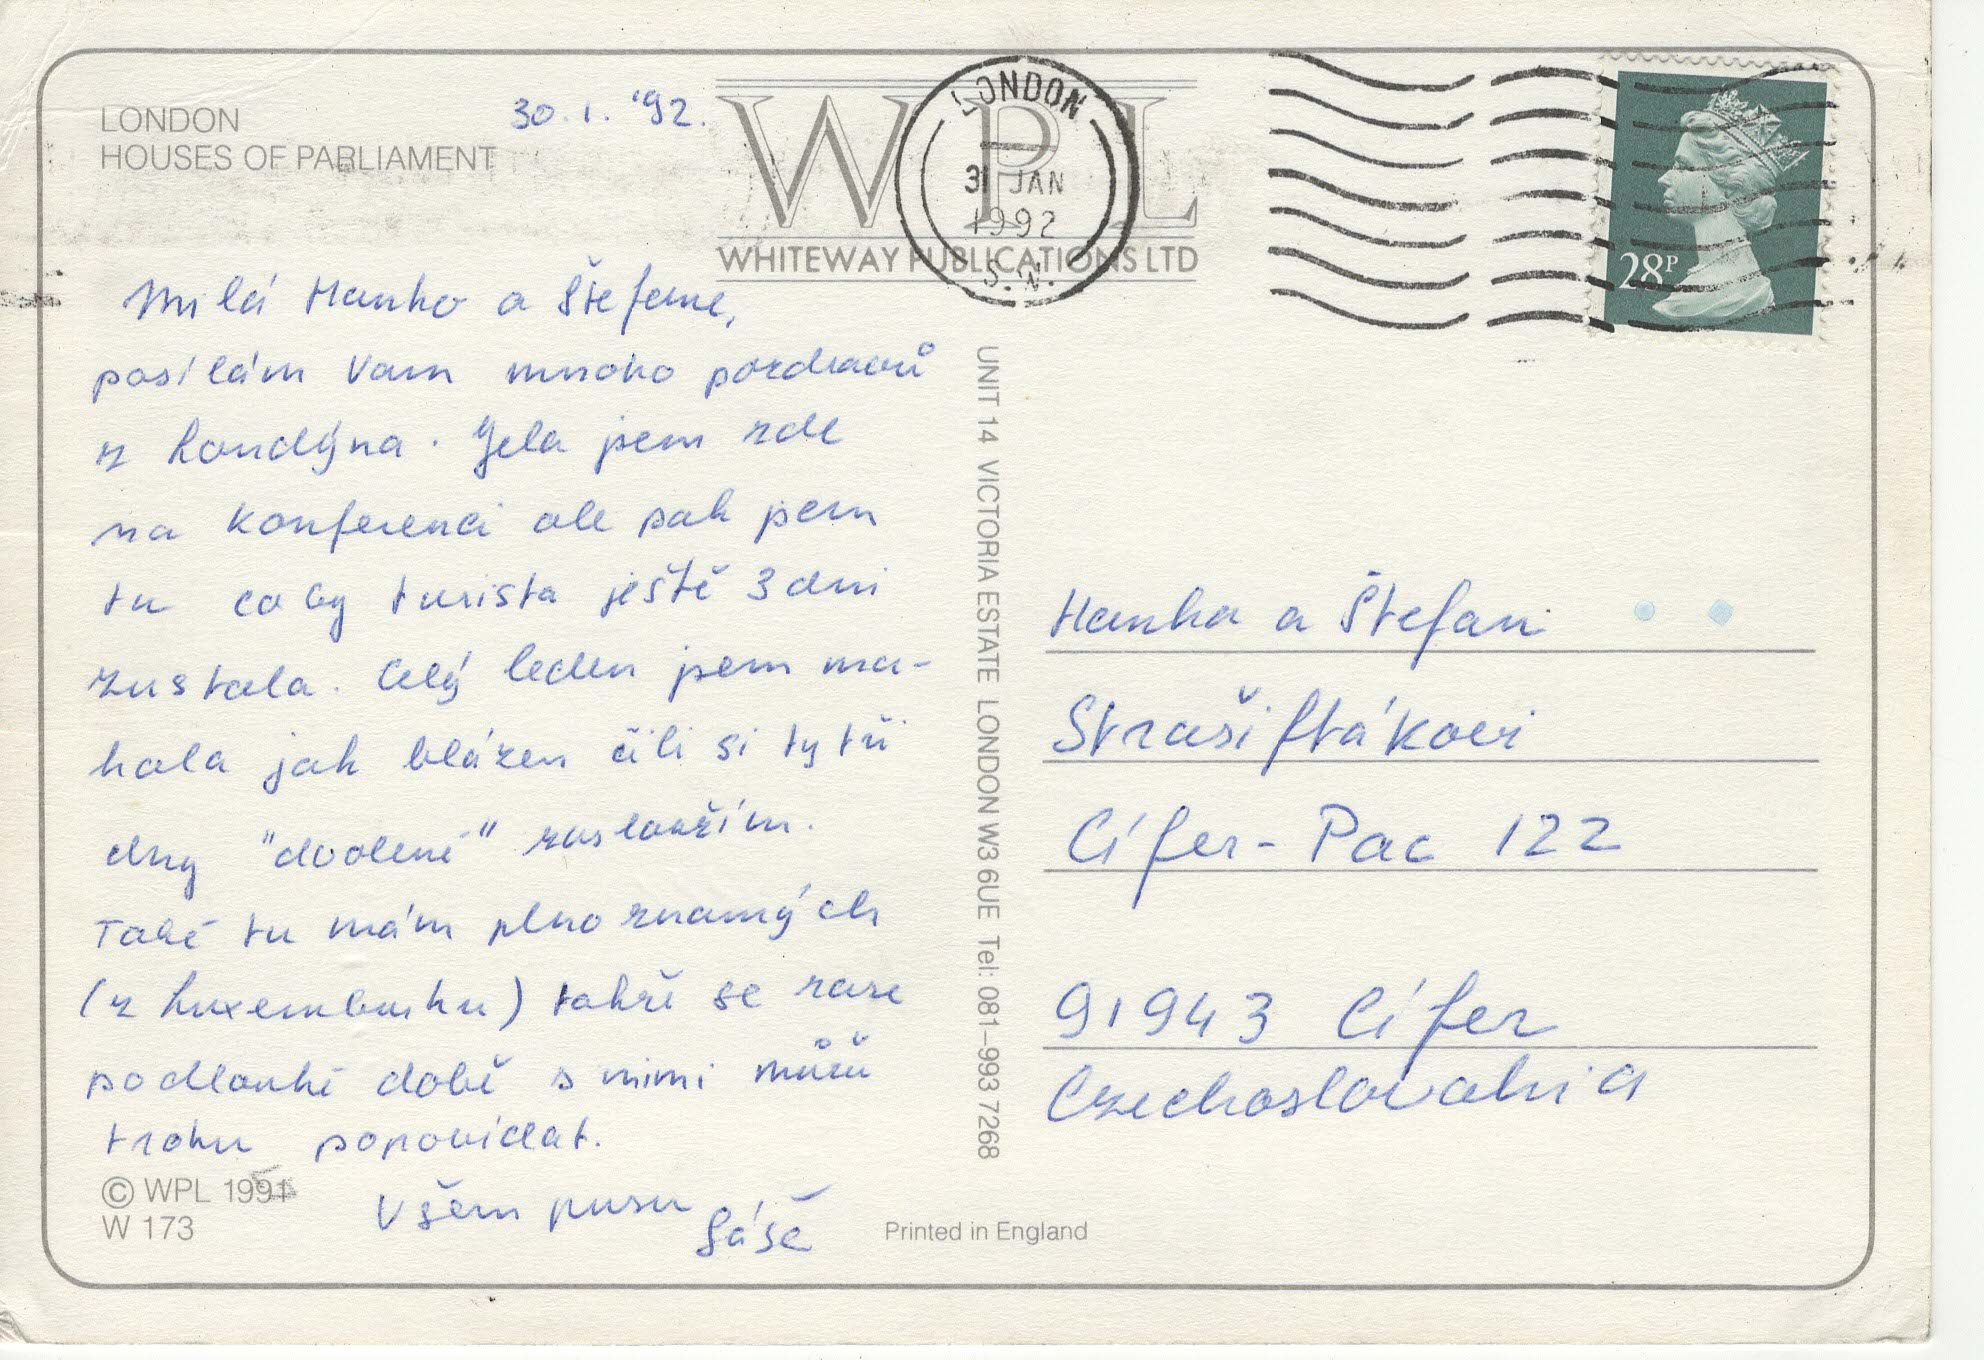 LONDON
HOUSES OF PARLIAMENT
30. 1. '92.
WPL
WHITEWAY PUBLICATIONS LTD
LONDON
31 JAN
1992
S.W.
28P
Milá Hanko a Štefane,
posílám Vam mnoho pozdravů
z Londýna. Jela jsem zde
na konferenci ale pak jsem
tu coby turista ještě 3 dni
zustala. Celý leden jsem ma-
kala jak blázen čili si ty tři
dny "dovolené" zasloužím.
Také tu mám plno známých
(z Luxemburku) takže se zase
po dlouhé době s nimi můžu
trochu popovídat.
Všem pusu
Sáše
UNIT 14 VICTORIA ESTATE LONDON W3 6UE Tel: 081–993 7268
Hanka a Štefan
Strašiftákovi
Cífer - Pac 122
91943 Cífer
Czechoslovakia
© WPL 1991
W 173
Printed in England